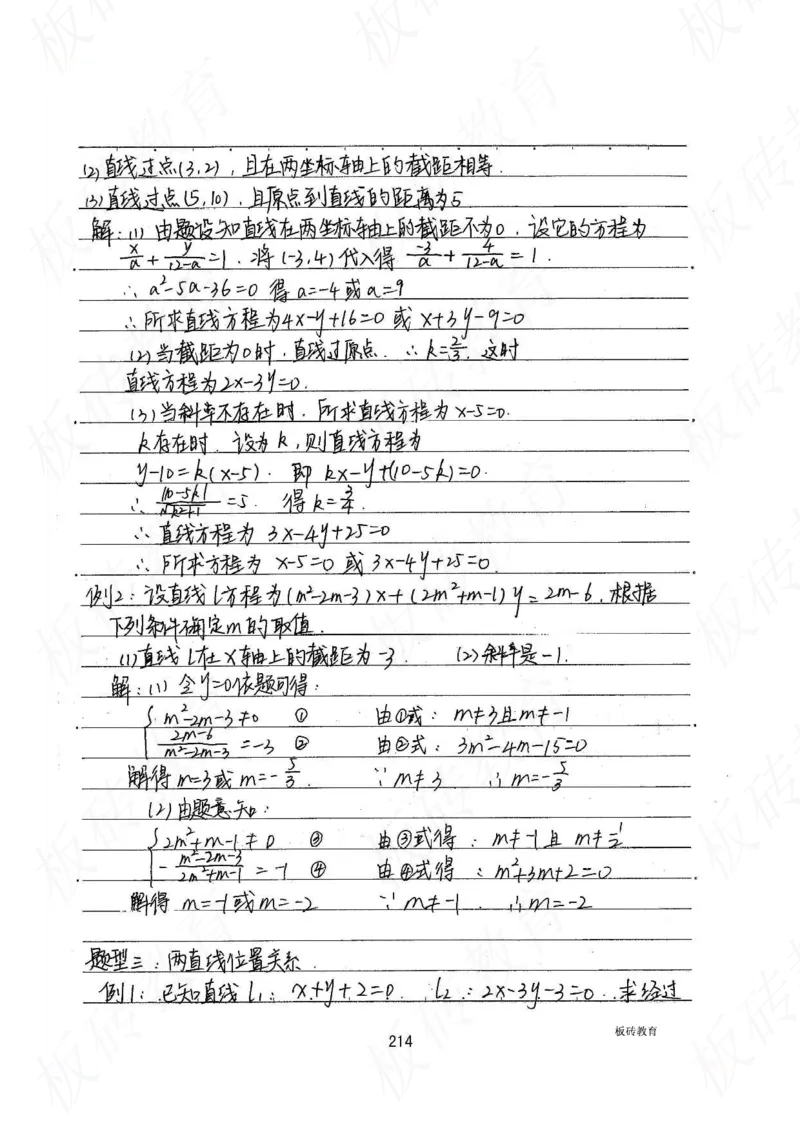 (2)直线过点(3,2),且在两坐标轴上的截距相等.
(3)直线过点(5,10),且原点到直线的距离为5
解:(1) 由题设知直线在两坐标轴上的截距不为0,设它的方程为
x/a + y/(12-a) = 1. 将(-3,4)代入得 -3/a + 4/(12-a) = 1.
∴ a²-5a-36=0 得 a=-4或a=9
∴所求直线方程为4x-y+16=0 或 x+3y-9=0
(2)当截距为0时,直线过原点. ∴ k=2/3. 这时
直线方程为2x-3y=0.
(3)当斜率不存在时,所求直线方程为 x-5=0.
k存在时 设为k,则直线方程为
y-10=k(x-5). 即 kx-y+(10-5k)=0.
∴ |10-5k|/√(k²+1) =5. 得 k=3/4.
∴ 直线方程为 3x-4y+25=0
∴ 所求方程为 x-5=0 或 3x-4y+25=0.
例2:设直线l方程为(m²-2m-3)x+(2m²+m-1)y=2m-6,根据
下列条件确定m的取值.
(1)直线l在x轴上的截距为-3. (2)斜率是-1.
解:(1) 令y=0依题可得:
{ m²-2m-3≠0 ① 由①式: m≠3且m≠-1
(2m-6)/(m²-2m-3) =-3 ② 由②式: 3m²-4m-15=0
解得m=3或m=-5/3. ∵m≠3 ∴m=-5/3
(2)由题意知:
{ 2m²+m-1≠0 ③ 由③式得: m≠-1且 m≠1/2
-(m²-2m-3)/(2m²+m-1) = -1 ④ 由④式得: m²+3m+2=0
解得 m=-1或m=-2 ∵m≠-1. ∴m=-2
题型三:两直线位置关系.
例1:已知直线l₁:x+y+2=0. l₂:2x-3y-3=0..求经过
214
板砖教育